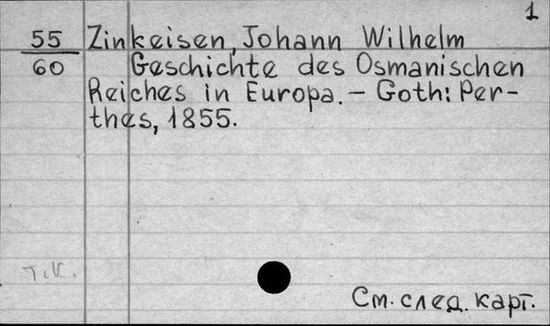 1
55 Zinkeisen, Johann Wilhelm
60 Geschichte des Osmanischen
Reiches in Europa. – Goth: Per-
thes, 1855.
Т.К.
См. след. карт.